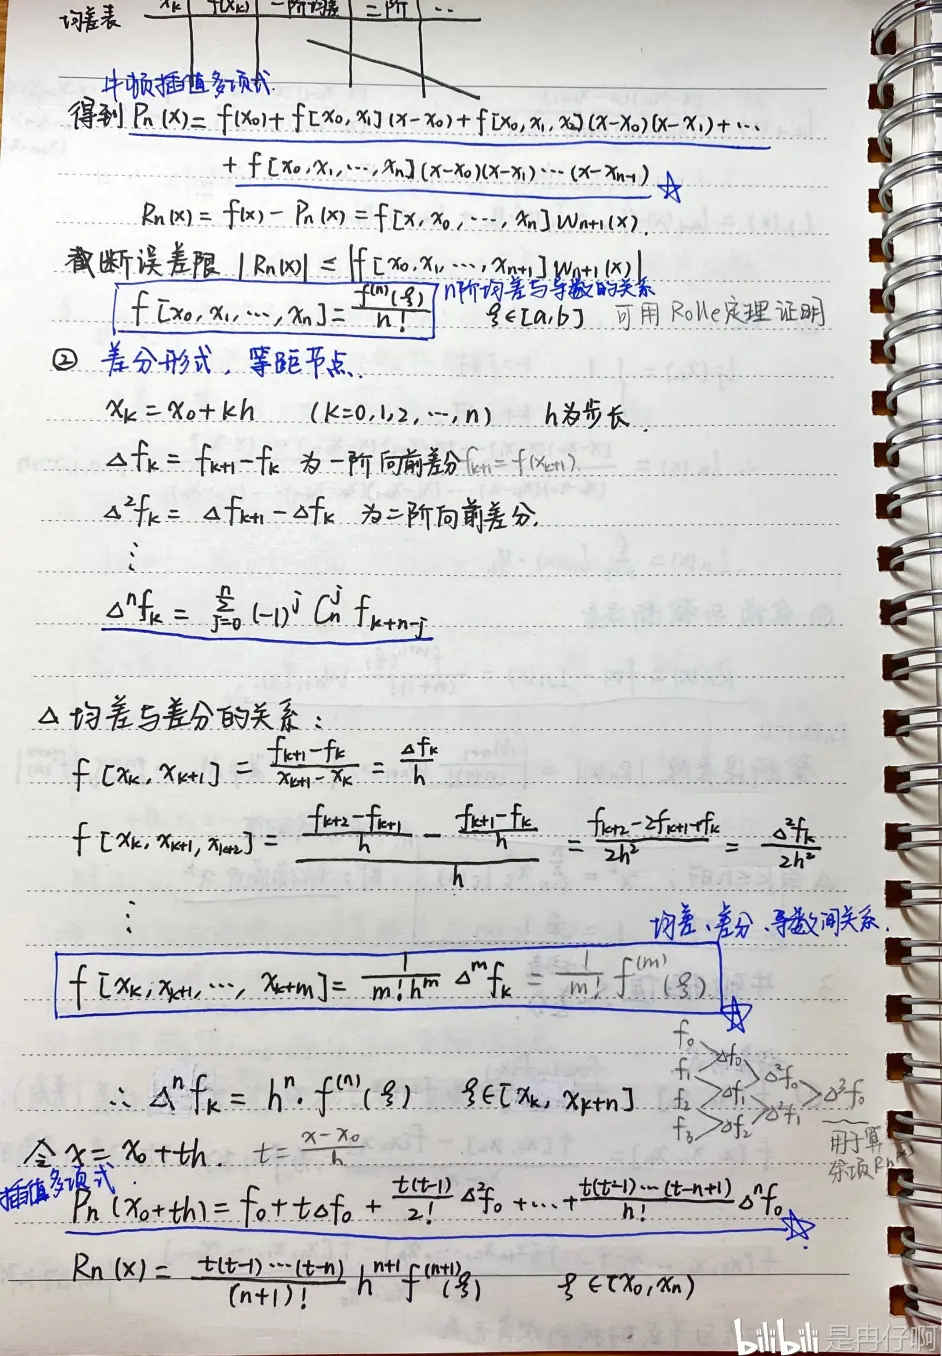 均差表 xk f(xk) 一阶均差 二阶 …
牛顿插值多项式
得到 Pn(x)= f(x0)+ f[x0,x1](x-x0)+ f[x0,x1,x2](x-x0)(x-x1)+…
+ f[x0,x1,…,xn](x-x0)(x-x1)…(x-xn-1) ☆
Rn(x)= f(x)- Pn(x)= f[x,x0,…,xn]Wn+1(x).
截断误差限 |Rn(x)| ≤ |f[x0,x1,…,xn+1]Wn+1(x)|
n阶均差与导数的关系
f[x0,x1,…,xn]= f^(n)(ξ)/n! ξ∈[a,b] 可用Rolle定理证明
② 差分形式,等距节点.
xk = x0+kh (k=0,1,2,…,n) h为步长.
Δfk = fk+1-fk 为一阶向前差分 fk+1=f(xk+1).
Δ²fk = Δfk+1-Δfk 为二阶向前差分.
⋮
Δ^n fk = Σ_{j=0}^{n} (-1)^j C_n^j fk+n-j
△ 均差与差分的关系:
f[xk,xk+1] = (fk+1-fk)/(xk+1-xk) = Δfk/h
f[xk,xk+1,xk+2]= ((fk+2-fk+1)/h - (fk+1-fk)/h)/h = (fk+2-2fk+1+fk)/2h² = Δ²fk/2h²
⋮
均差、差分、导数间关系.
f[xk,xk+1,…,xk+m]= 1/(m!h^m) Δ^m fk = 1/m! f^(m)(ξ) ☆
f0 f1 f2 f3 Δf0 Δf1 Δf2 Δ²f0 Δ²f1 Δ³f0
∴ Δ^n fk = h^n · f^(n)(ξ) ξ∈[xk,xk+n]
用于算
余项Rn
令 x = x0+th. t= (x-x0)/h
插值多项式:
Pn(x0+th)= f0+tΔf0+ t(t-1)/2! Δ²f0 +…+ t(t-1)…(t-n+1)/n! Δ^n f0 ☆
Rn(x)= t(t-1)…(t-n)/(n+1)! h^(n+1) f^(n+1)(ξ) ξ∈(x0,xn)
bilibili 是冉仔啊